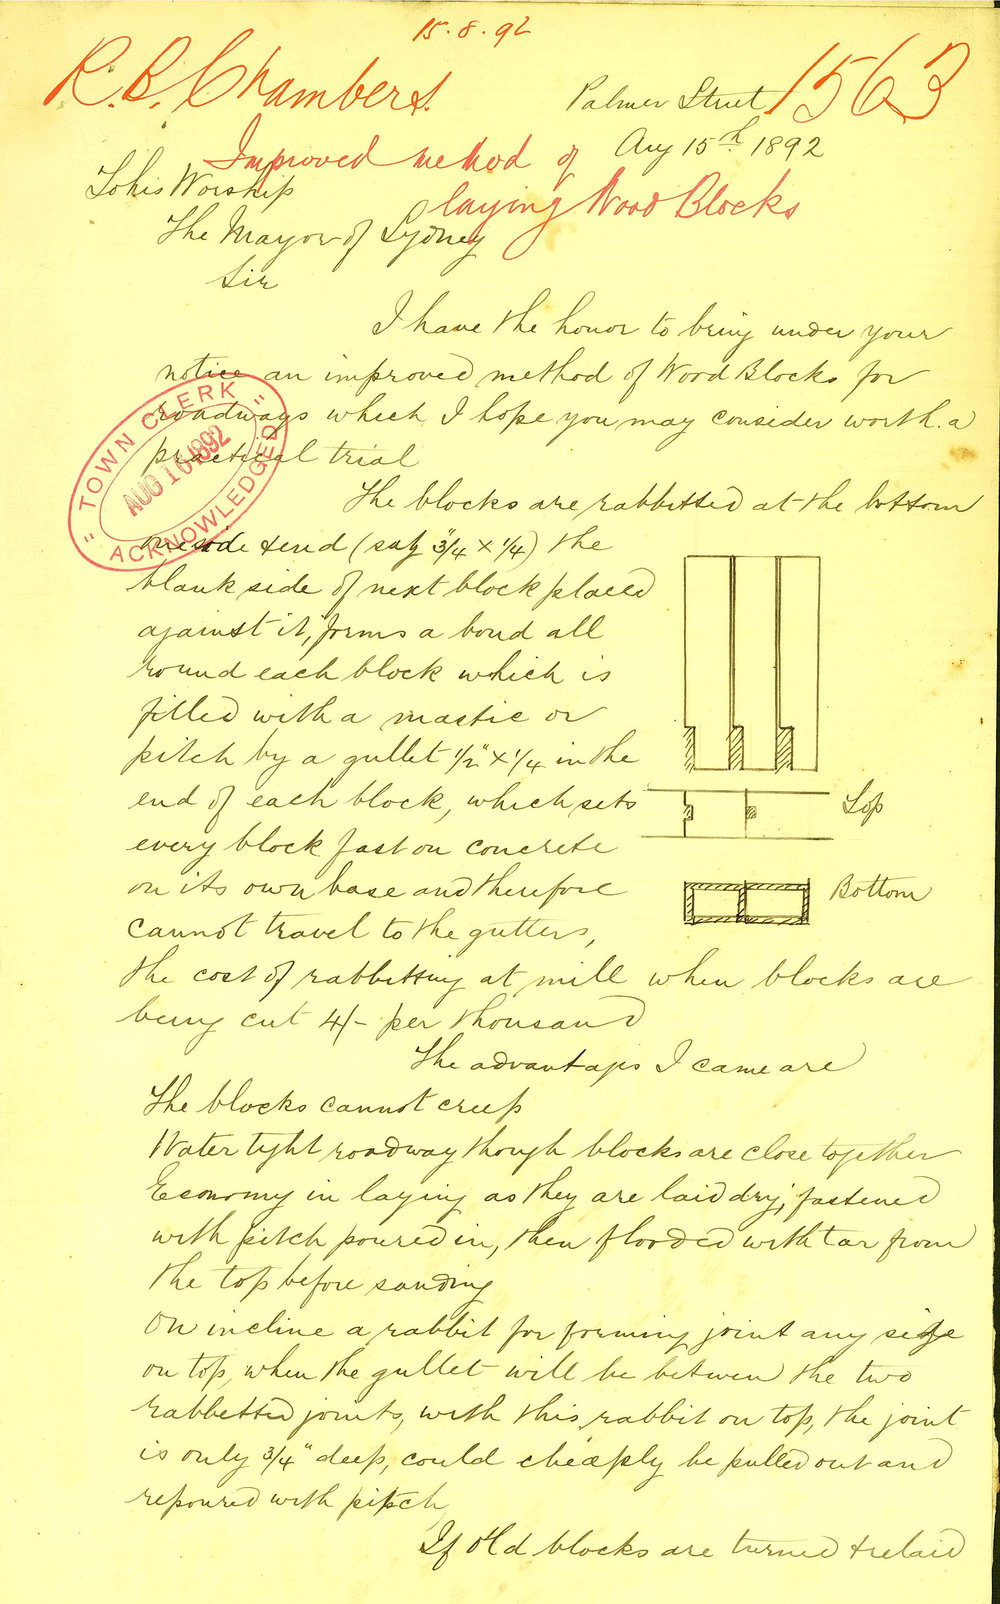 15.8.92
R. B. Chambers.
1563
Palmer Street
Aug 15th 1892
Improved method of
laying Wood Blocks
To his Worship
The Mayor of Sydney
Sir
I have the honor to bring under your
notice an improved method of Wood Blocks for
roadways which I hope you may consider worth a
practical trial
"TOWN CLERK"
AUG 16 1892
ACKNOWLEDGED
The blocks are rabbetted at the bottom
one side & end (say 3/4" x 1/4) the
blank side of next block placed
against it, forms a bond all
round each block which is
filled with a mastic or
pitch by a gullet 1/2" x 1/4 in the
end of each block, which sets
every block fast on concrete
on its own base and therefore
cannot travel to the gutters,
Top
Bottom
the cost of rabbetting at mill when blocks are
being cut 4/- per thousand
The advantages I came are
The blocks cannot creep
Water tight roadway though blocks are close together
Economy in laying as they are laid dry, fastened
with pitch poured in, then flooded with tar from
the top before sanding
On incline a rabbit for forming joint any size
on top, when the gullet will be between the two
rabbetted joints, with this rabbit on top, the joint
is only 3/4" deep, could cheaply be pulled out and
repoured with pitch
If old blocks are turned & relaid